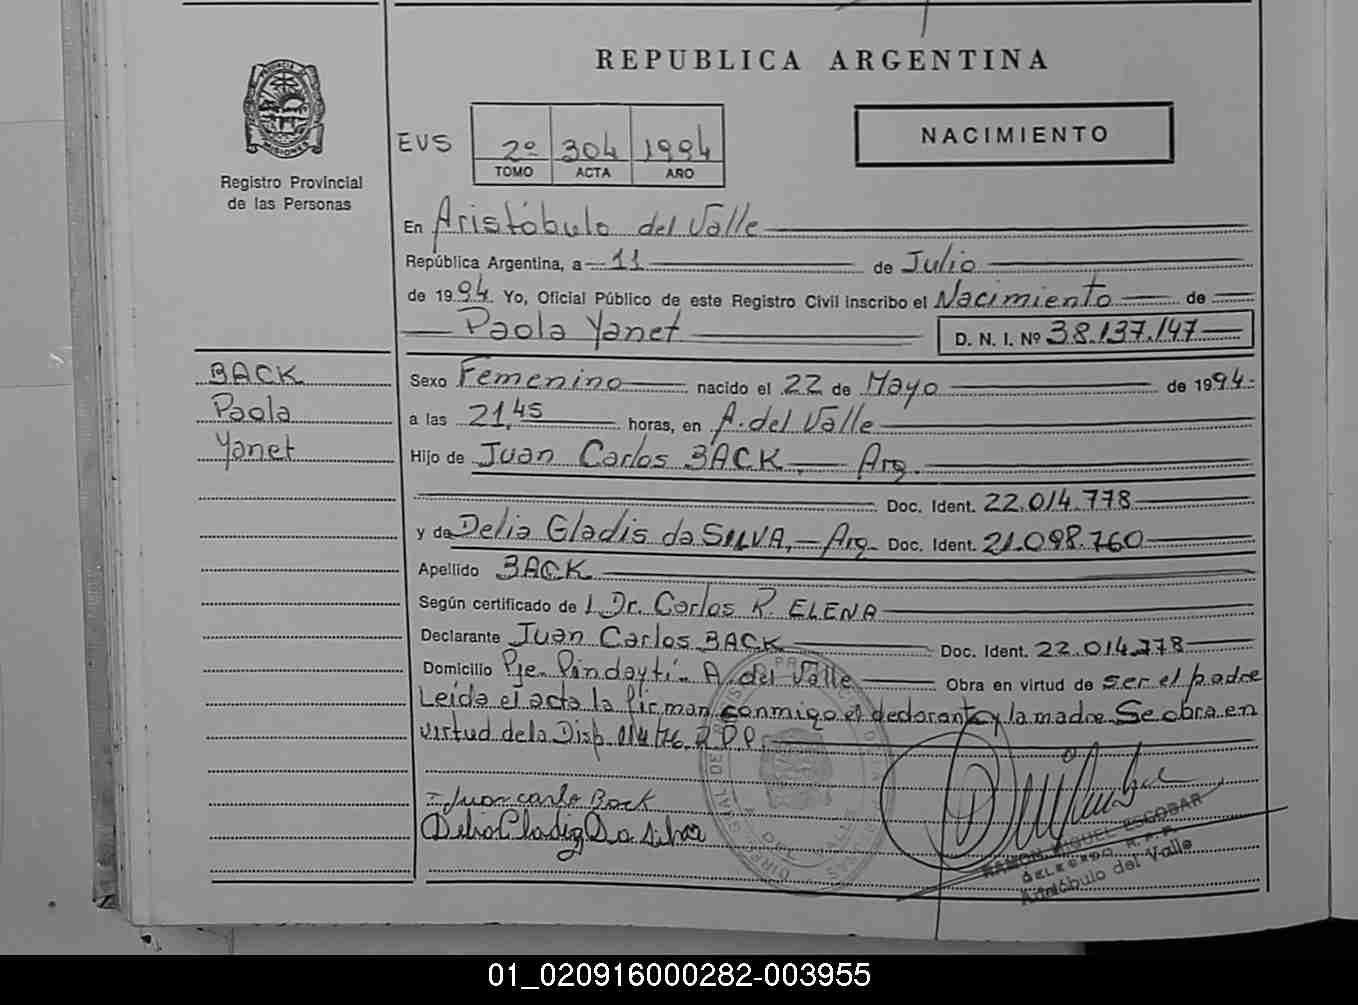 REPUBLICA ARGENTINA
PROVINCIA DE
MISIONES
Registro Provincial
de las Personas
EVS 2º 304 1994
TOMO ACTA AÑO
NACIMIENTO
En Aristóbulo del Valle
República Argentina, a 11 de Julio
de 1994. Yo, Oficial Público de este Registro Civil inscribo el Nacimiento de
Paola Yanet D. N. I. Nº 38.137.147
BACK
Paola
Yanet
Sexo Femenino nacido el 22 de Mayo de 1994
a las 21,45 horas, en A. del Valle
Hijo de Juan Carlos BACK, Arg.
Doc. Ident. 22.014.778
y de Delia Gladis da SILVA, Arg. Doc. Ident. 21.098.760
Apellido BACK
Según certificado de 1. Dr. Carlos R. ELENA
Declarante Juan Carlos BACK Doc. Ident. 22.014.778
Domicilio Pje. Pindaytí. A. del Valle Obra en virtud de ser el padre
Leída el acta la firman conmigo el declarante y la madre. Se obra en
virtud de la Disp. R.P.P.
Juan carlo Back
Delia Cladiz Da silva
RAMON MIGUEL ESCOBAR
DELEGADO R.P.P.
Aristóbulo del Valle
01_020916000282-003955